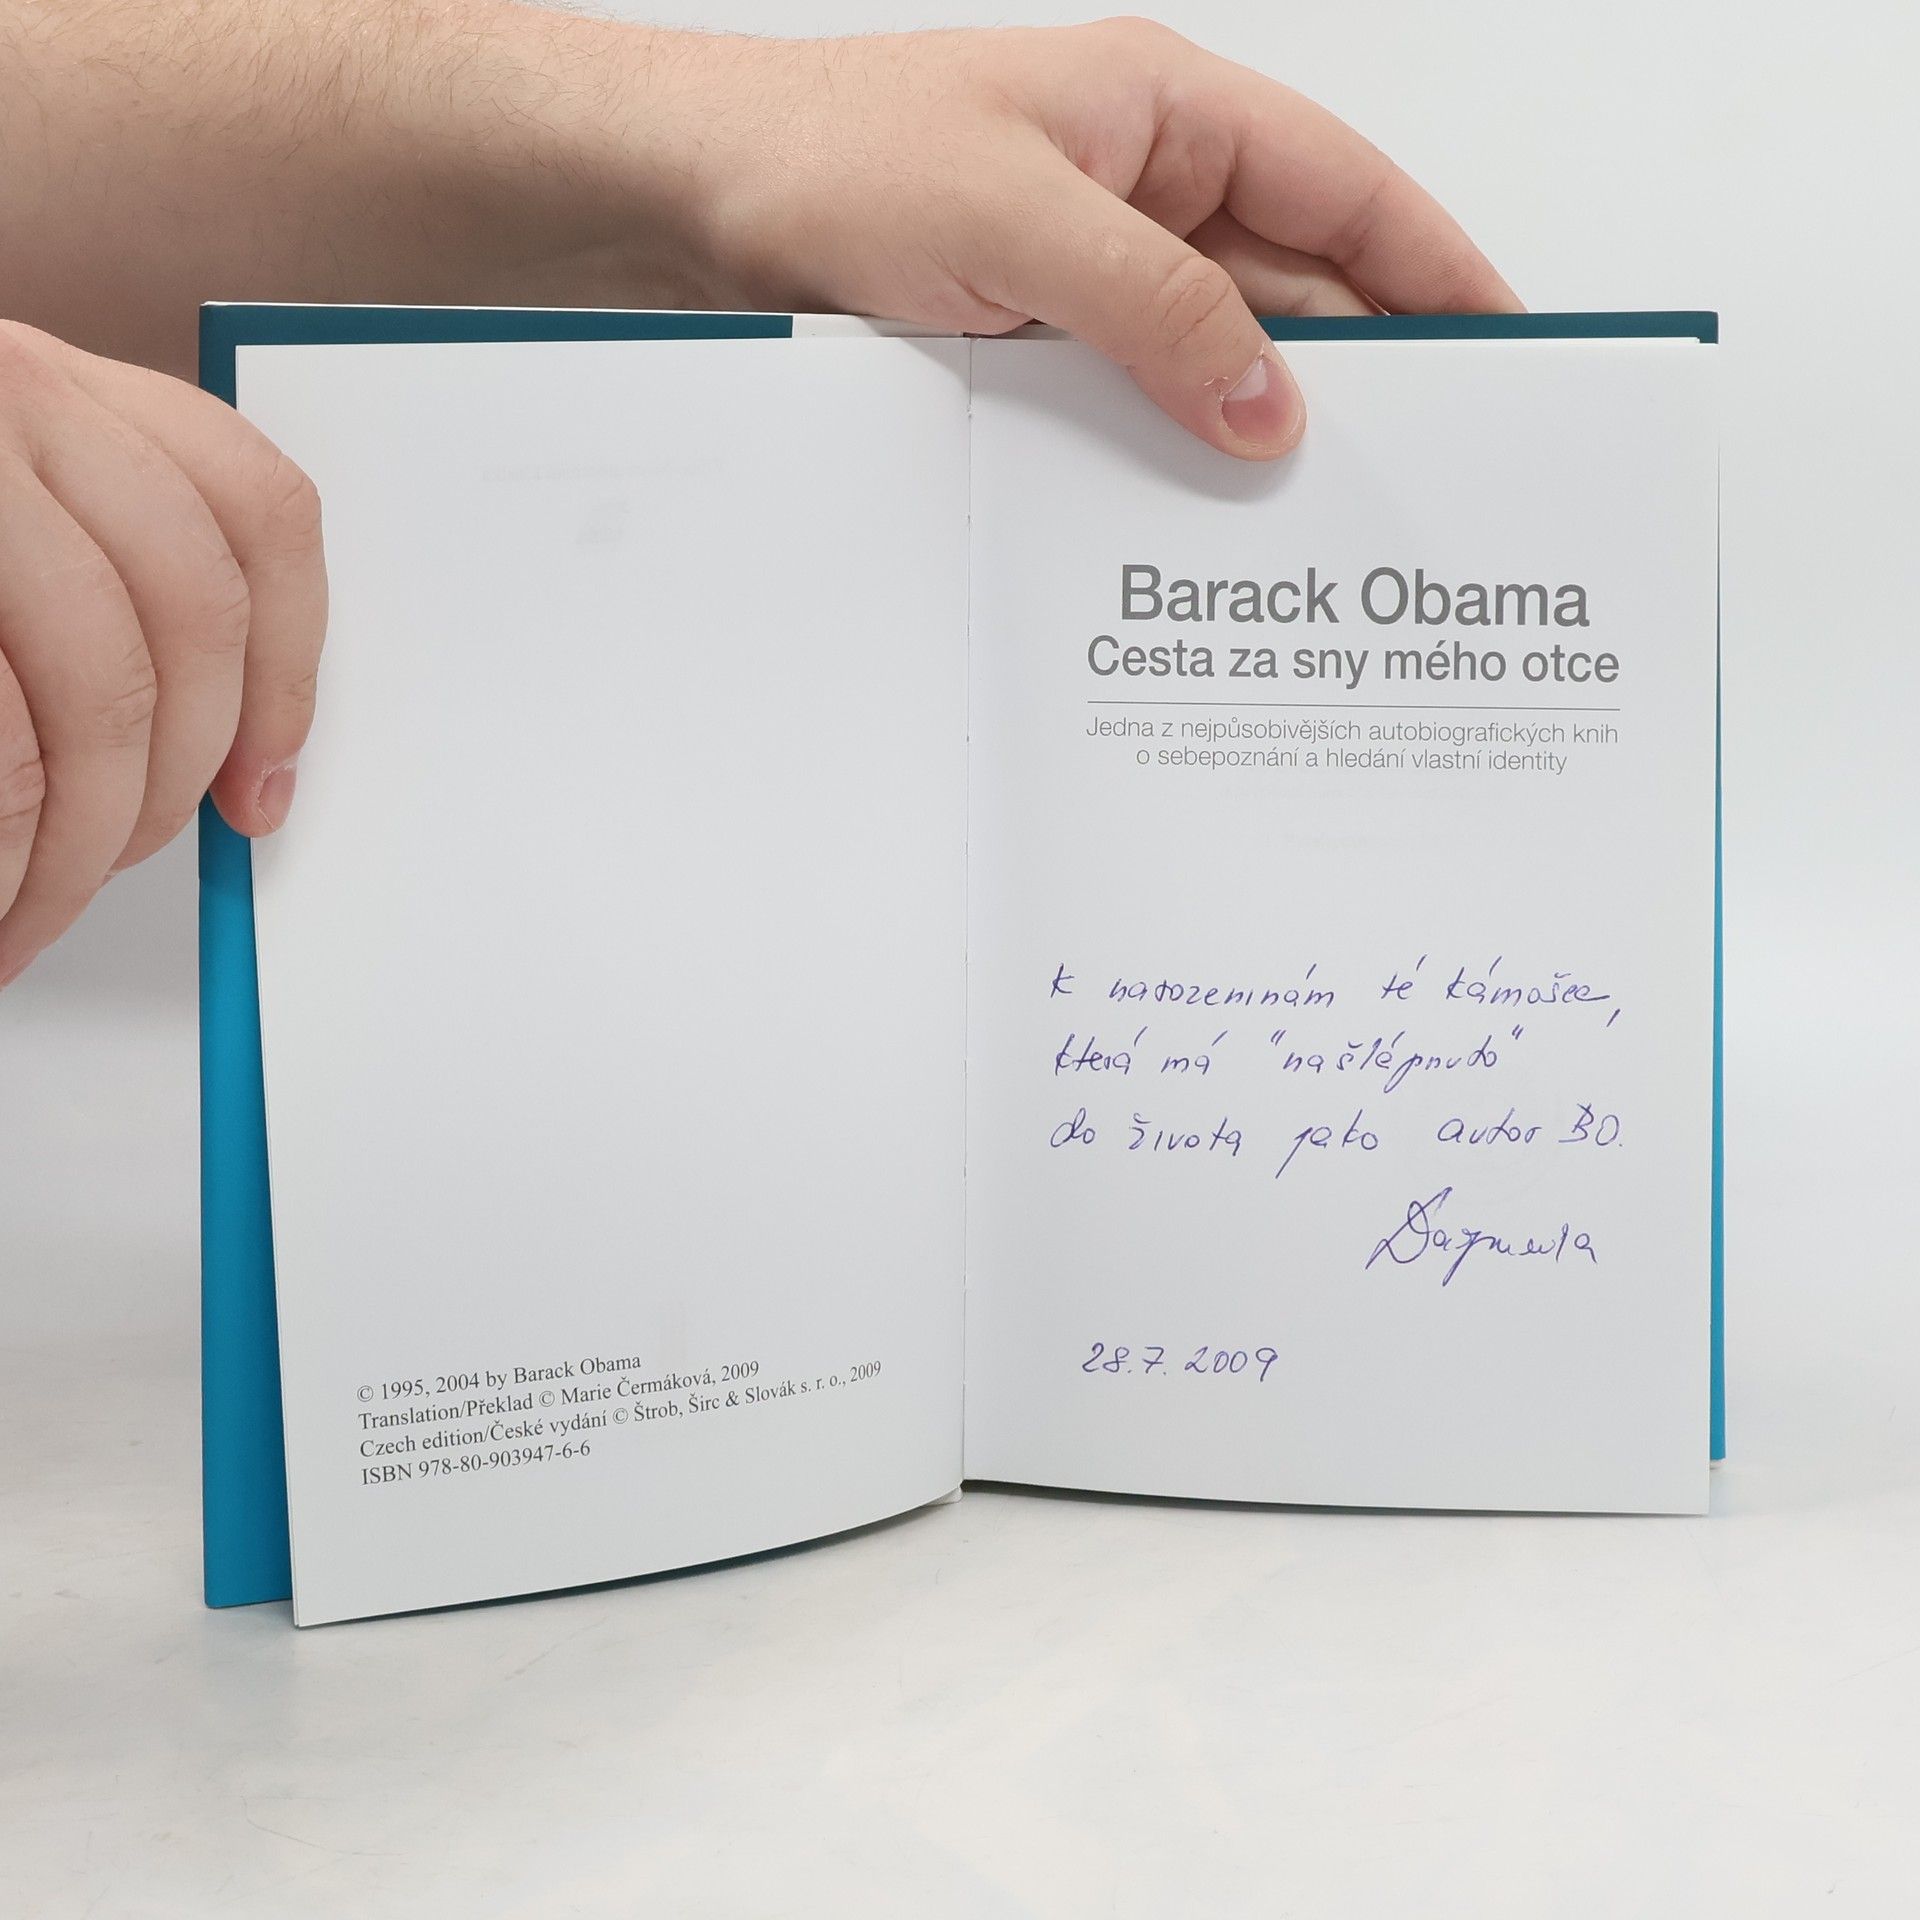 © 1995, 2004 by Barack Obama
Translation/Překlad © Marie Čermáková, 2009
Czech edition/České vydání © Štrob, Širc & Slovák s. r. o., 2009
ISBN 978-80-903947-6-6
Barack Obama
Cesta za sny mého otce
Jedna z nejpůsobivějších autobiografických knih
o sebepoznání a hledání vlastní identity
K narozeninám té kámošce,
která má "našlápnuto"
do života jako autor BO.
28.7. 2009